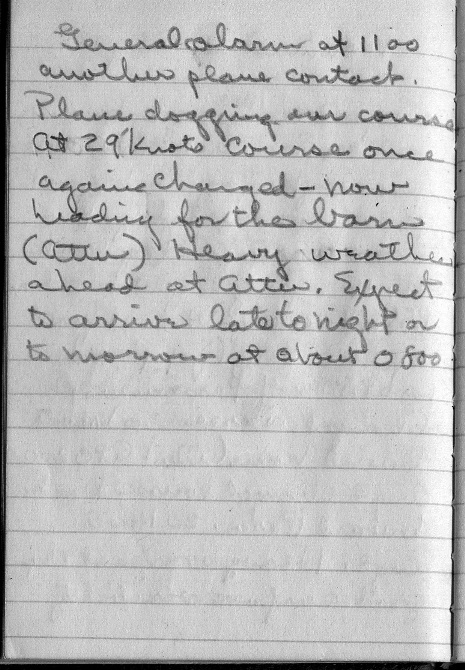 General alarm at 1100
another plane contact.
Plane dogging our course
at 29 knots course once
again changed - now
heading for the barn
(Attu) Heavy weather
ahead at Attu. Expect
to arrive late to night or
to morrow at about 0800